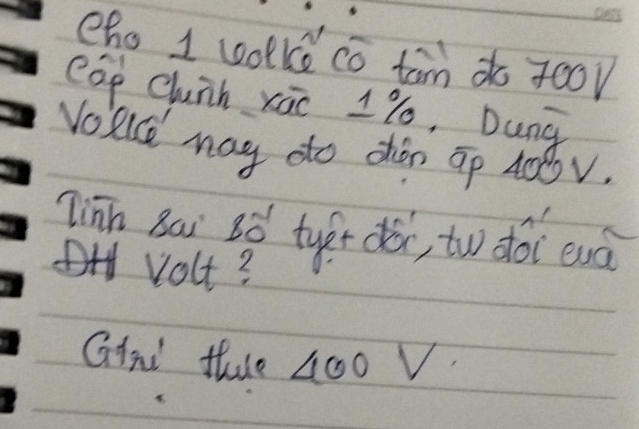 Cho 1 volkế có tầm đo 700V
Cấp chính xác 1%. Dùng
Volkế này đo điện áp 400V.
Tính sai số tuyệt đối, tư đối của
ĐH Volt?
Gtrị thực 400 V.